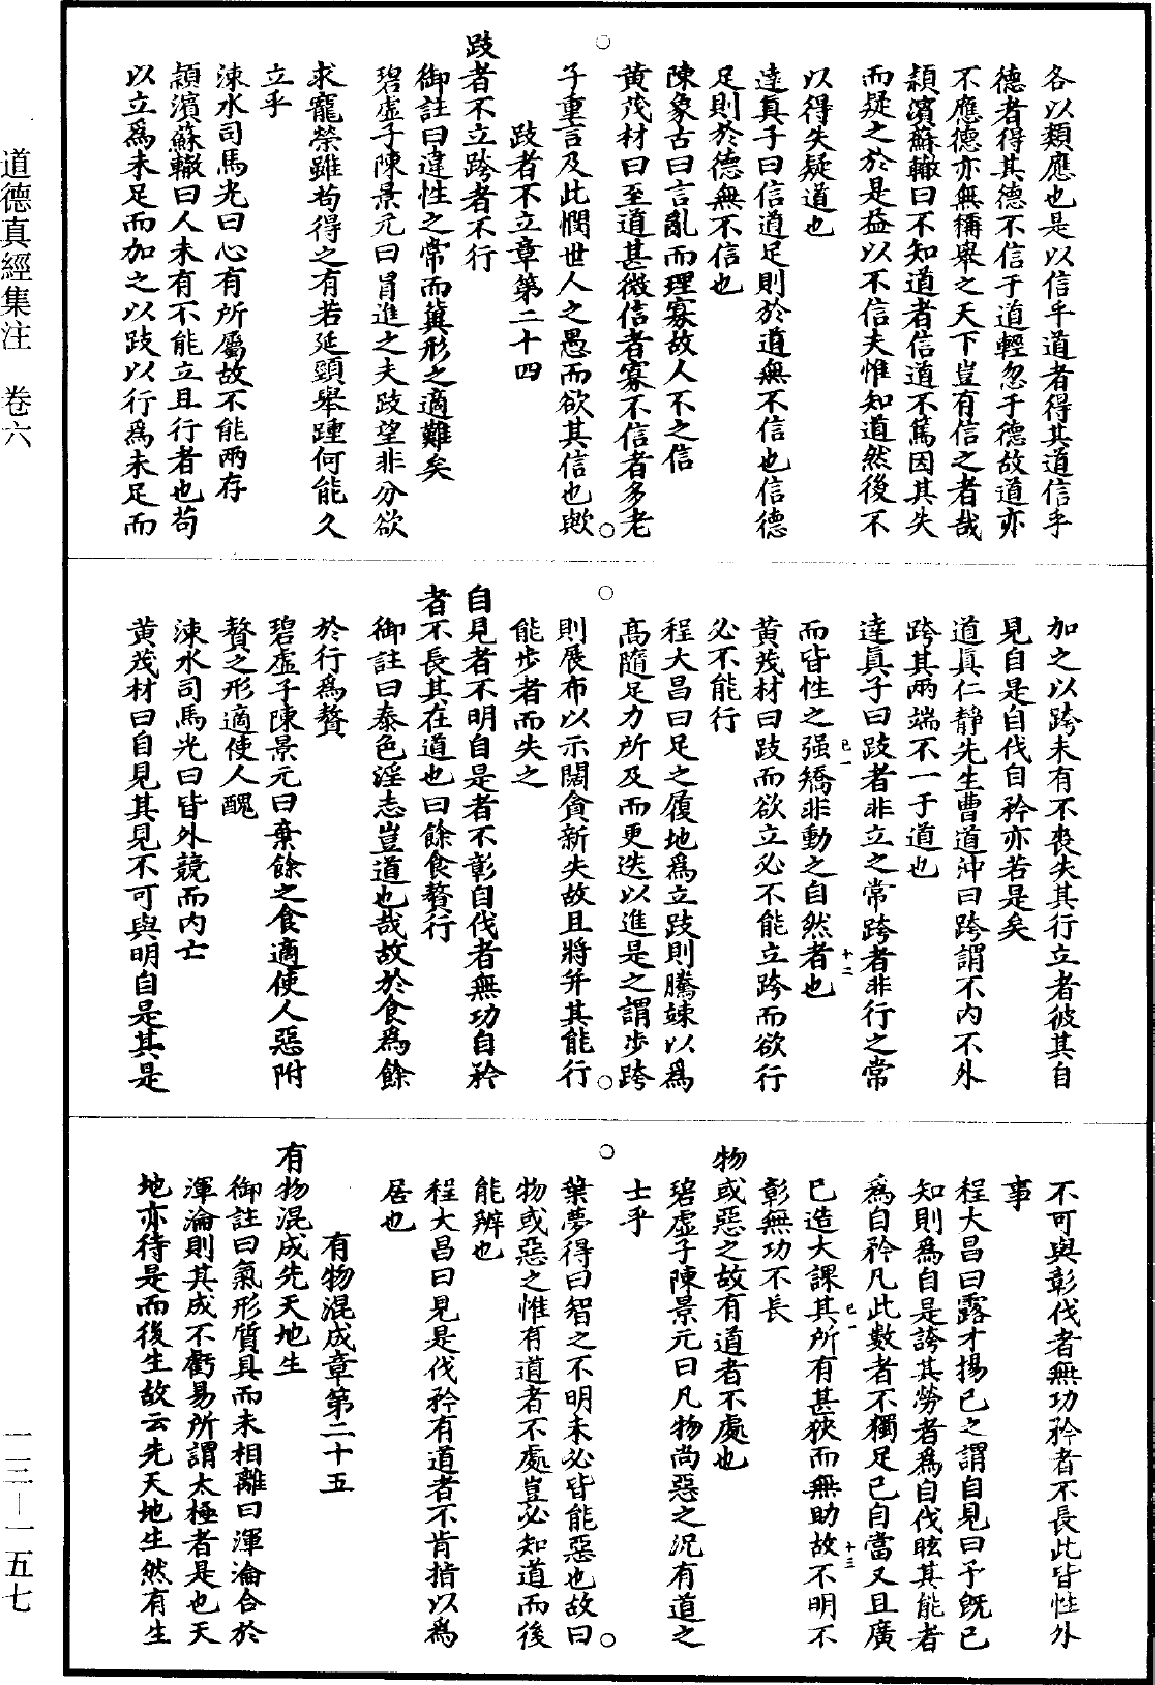 各以類應也是以信乎道者得其道信乎
德者得其德不信于道輕忽于德故道亦
不應德亦無稱舉之天下豈有信之者哉
潁濱蘇轍曰不知道者信道不篤因其失
而疑之於是益以不信夫惟知道然後不
以得失疑道也
達真子曰信道足則於道無不信也信德
足則於德無不信也
陳象古曰言亂而理寡故人不之信
黃茂材曰至道甚微信者寡不信者多老
子重言及此憫世人之愚而欲其信也歟
跂者不立章第二十四
跂者不立跨者不行
御註曰違性之常而冀形之適難矣
碧虛子陳景元曰冒進之夫跂望非分欲
求寵榮雖苟得之有若延頸舉踵何能久
立乎
涑水司馬光曰心有所屬故不能兩存
潁濱蘇轍曰人未有不能立且行者也苟
以立爲未足而加之以跂以行爲未足而
加之以跨未有不喪失其行立者彼其自
見自是自伐自矜亦若是矣
道真仁靜先生曹道沖曰跨謂不內不外
跨其兩端不一于道也
達真子曰跂者非立之常跨者非行之常
而皆性之强矯非動之自然者也
已一
十二
黃茂材曰跂而欲立必不能立跨而欲行
必不能行
程大昌曰足之履地爲立跂則騰竦以爲
高隨足力所及而更迭以進是之謂步跨
則展布以示闊貪新失故且將并其能行
能步者而失之
自見者不明自是者不彰自伐者無功自矜
者不長其在道也曰餘食贅行
御註曰泰色淫志豈道也哉故於食爲餘
於行爲贅
碧虛子陳景元曰棄餘之食適使人惡附
贅之形適使人醜
涑水司馬光曰皆外競而內亡
黃茂材曰自見其見不可與明自是其是
不可與彰伐者無功矜者不長此皆性外
事
程大昌曰露才揚已之謂自見曰予既已
知則爲自是誇其勞者爲自伐眩其能者
爲自矜凡此數者不獨足已自當又且廣
已造大課其所有甚狹而無助故不明不
已一
十三
彰無功不長
物或惡之故有道者不處也
碧虛子陳景元曰凡物尚惡之況有道之
士乎
葉夢得曰智之不明未必皆能惡也故曰
物或惡之惟有道者不處豈必知道而後
能辨也
程大昌曰見是伐矜有道者不肯指以爲
居也
有物混成章第二十五
有物混成先天地生
御註曰氣形質具而未相離曰渾淪合於
渾淪則其成不虧易所謂太極者是也天
地亦待是而後生故云先天地生然有生
道德真經集注　卷六
一三－一五七